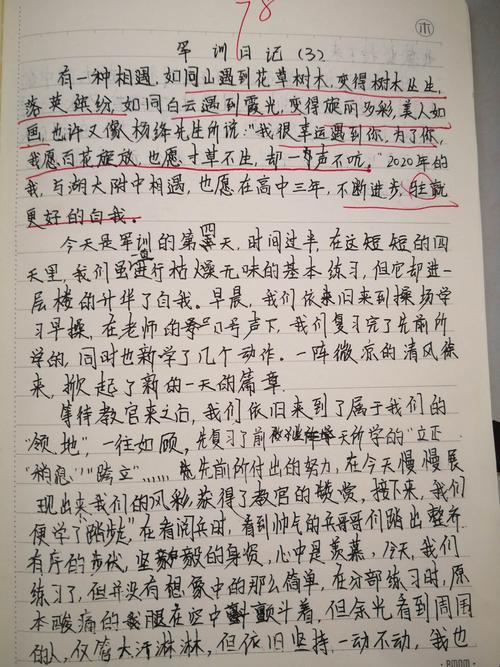 78
木
军训日记(3)
有一种相遇,如同山遇到花草树木,变得树木丛生,
落英缤纷,如同白云遇到霞光,变得旖丽多彩,美人如
画,也许又像杨绛先生所说:"我很幸运遇到你,为了你,
我愿百花旋放,也愿寸草不生,却一声不吭。"2020年的
我,与湖大附中相遇,也愿在高中三年,不断进步,铸就
更好的自我。
今天是军训的第四天,时间过半,在这短短的四
天里,我们虽进行枯燥无味的基本练习,但它却进一
层楼的升华了自我。早晨,我们依来旧来到操场学
习早操,在老师的口号声下,我们复习完了先前所
学的,同时也新学了几个动作。一阵微凉的清风徐
来,掀起了新的一天的篇章.
等待教官来之后,我们依旧来到了属于我们的
"领地",一往如顾,先复习了前天所学的"立正
"稍息""跨立"……先前所付出的努力,在今天慢慢展
现出来,我们的风彩获得了教官的赞赏,接下来,我们
便学了"踏步",在看阅兵时,看到帅气的兵哥哥们踏出整齐
有序的步伐,坚毅的身资,心中是羡慕,今天,我们
练习了,但并没有想象中的那么简单,在分部练习时,原
本酸痛的我腿在空中颤斗着,但余光看到周围
的人,仅管大汗淋淋,但依旧坚持一动不动,我也